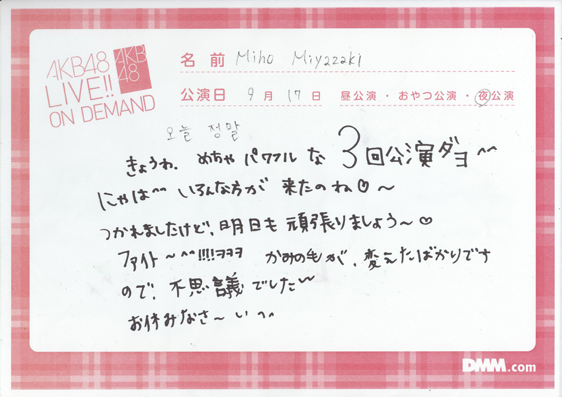 AKB48
LIVE!!
ON DEMAND
AKB
48
名前 Miho Miyazaki
公演日 9月17日 昼公演・おやつ公演・夜公演
오늘 정말
きょうわ、めちゃパワフルな3回公演ダヨ^^
にゃは^^ いろんな方が来たのね♡〜
つかれましたけど、明日も頑張りましょう〜♡
ファイト〜^^!!!!ヨヨヨ かみの毛が、変えたばかりです
ので、不思議でした〜
お休みなさ〜い^^
DMM.com